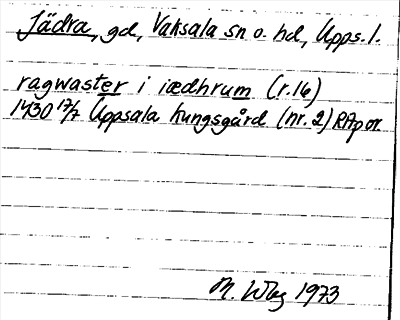 Jädra, gd, Vaksala sn o. hd, Upps. l.
ragwaster i iædhrum (r. 16)
1430 17/7 Uppsala kungsgård (nr. 2) RAp or.
M. Wbg 1973